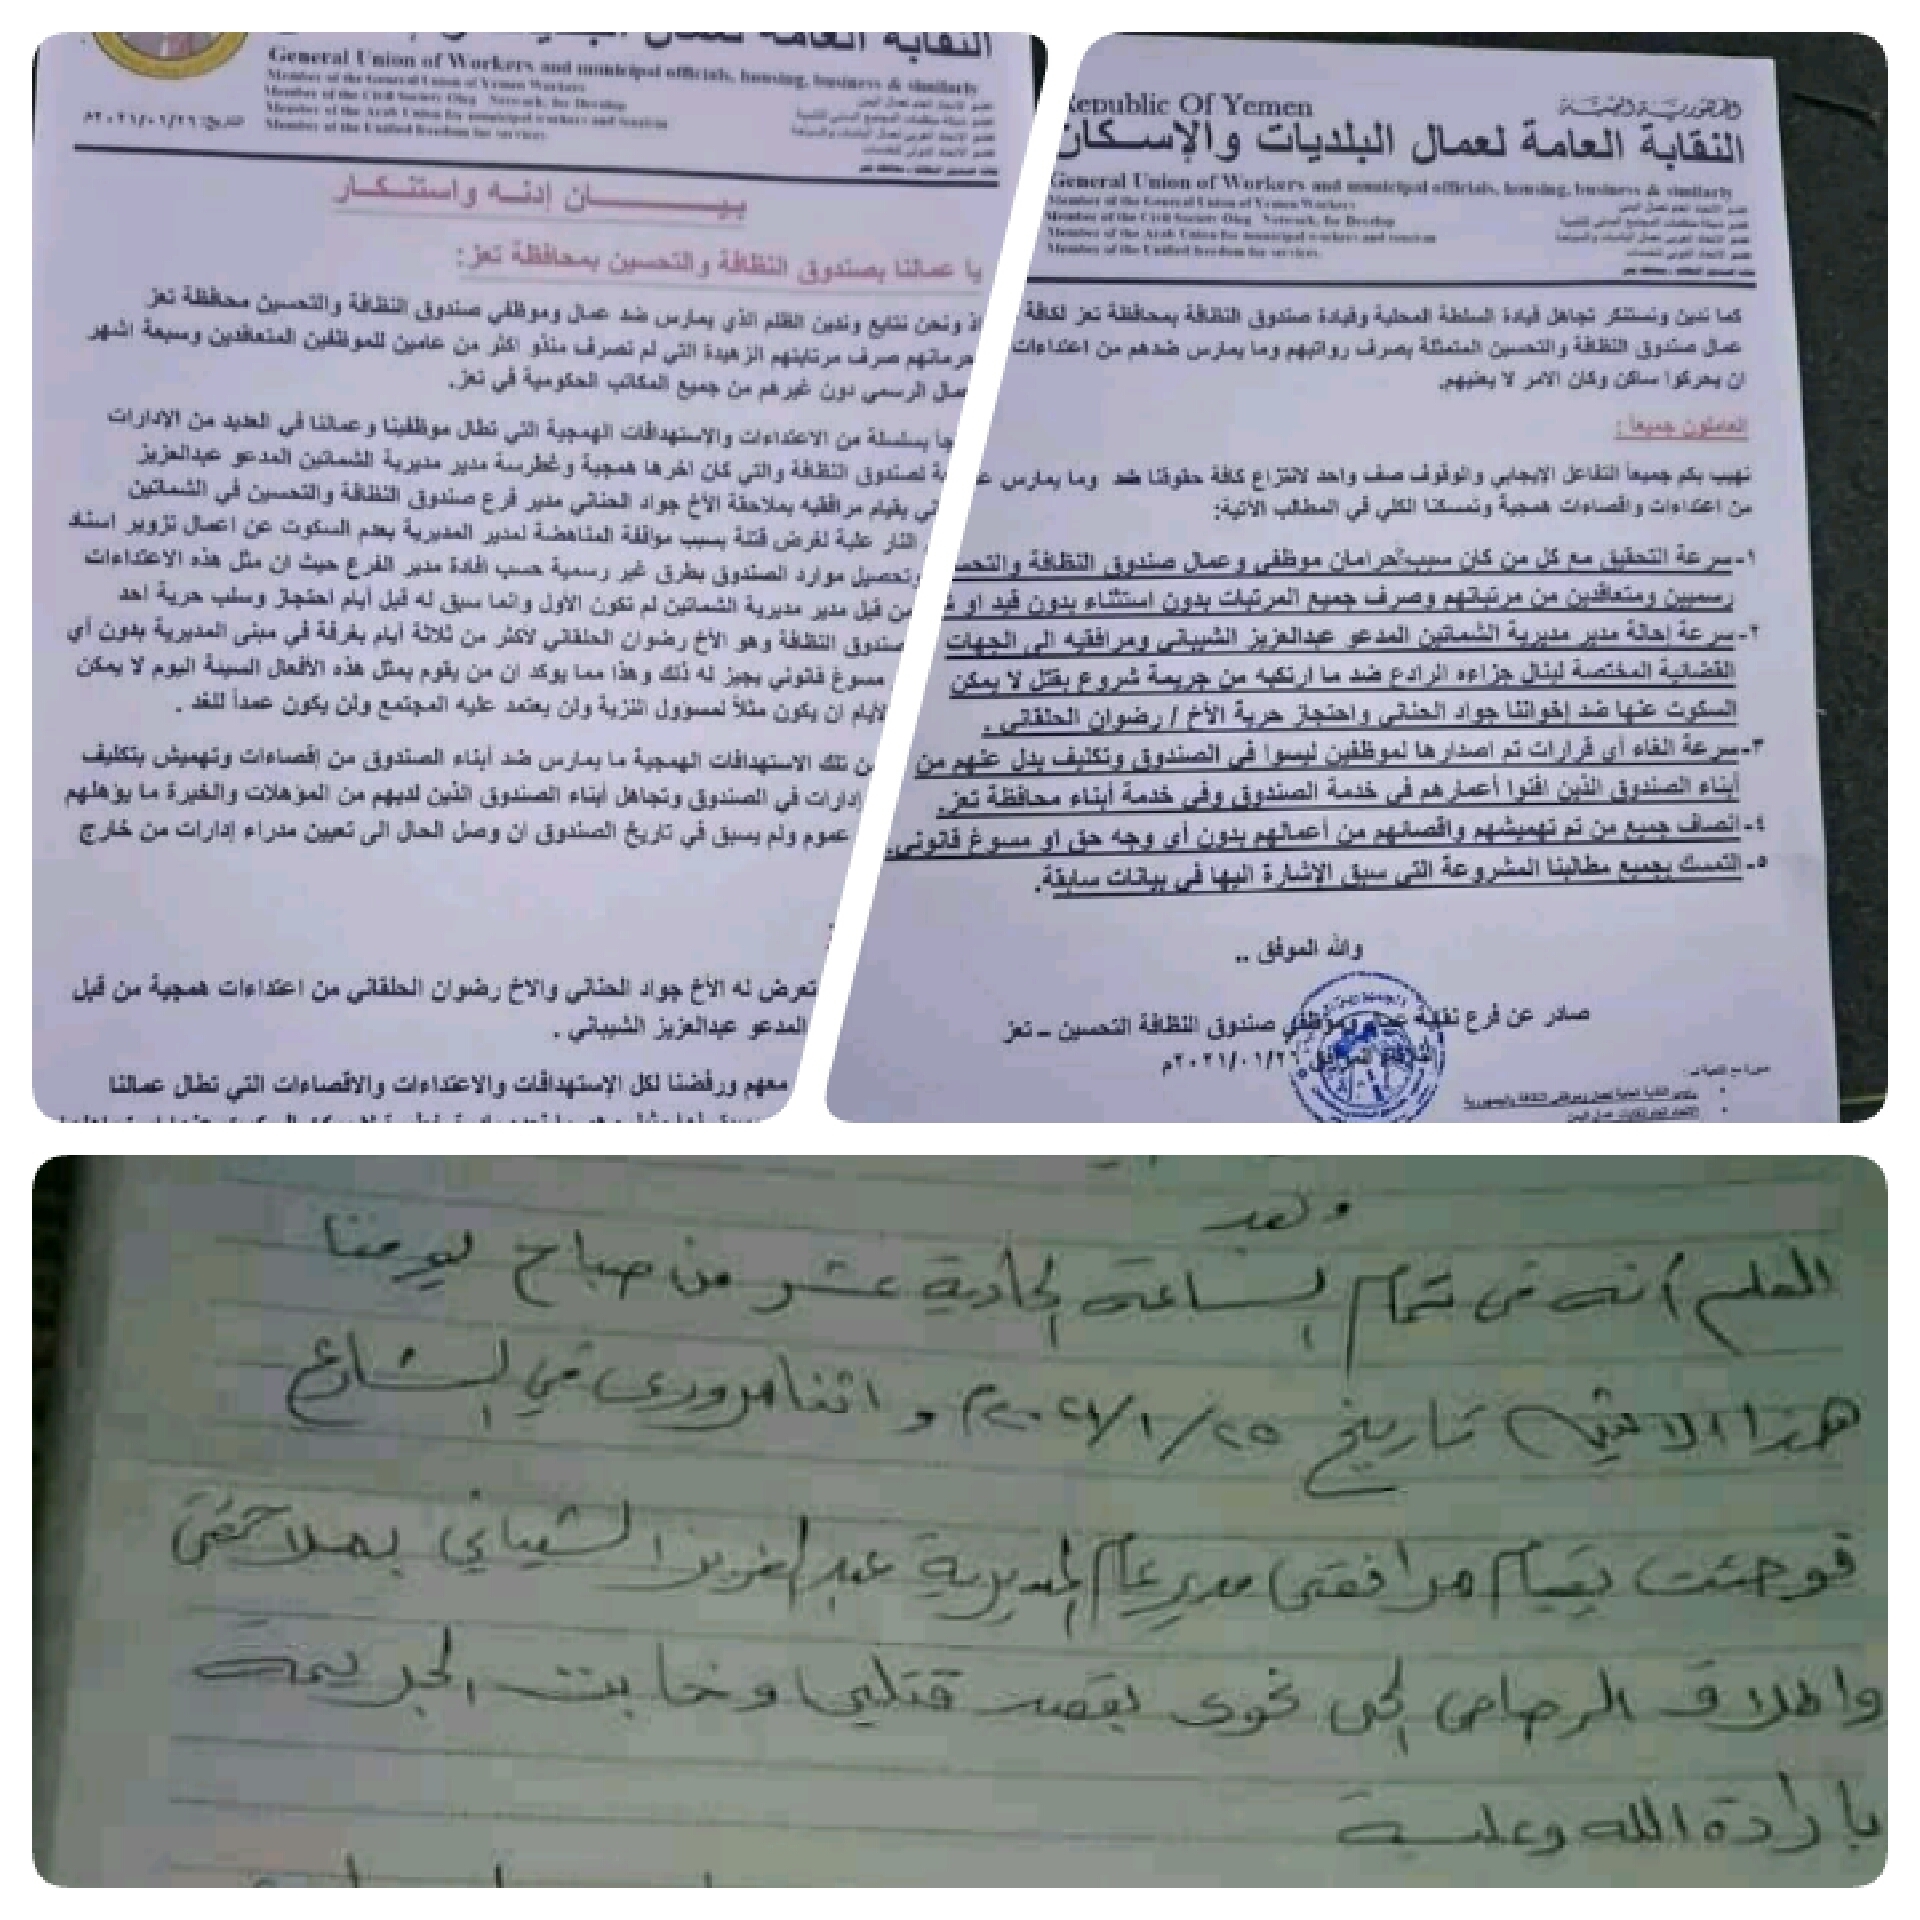 النقابة العامة لعمال
General Union of Workers and municipal officials, housing, business & similarly
Member of the General Union of Yemen Workers
Member of the Civil Society Oleg Network, for Develop
Member of the Arab Union for municipal workers and tourism
Member of the Unified freedom for services
التاريخ: ٢٠٢١/٠١/٢٦م
بيـــــــان إدنه واستنكـار
يا عمالنا بصندوق النظافة والتحسين بمحافظة تعز:
ونحن نتابع وندين الظلم الذي يمارس ضد عمال وموظفي صندوق النظافة والتحسين محافظة تعز
صرف مرتباتهم الزهيدة التي لم تصرف منذو اكثر من عامين للموظفين المتعاقدين وسبعة اشهر
الرسمي دون غيرهم من جميع المكاتب الحكومية في تعز.
بسلسلة من الاعتداءات والإستهدافات الهمجية التي تطال موظفينا وعمالنا في العديد من الإدارات
لصندوق النظافة والتي كان اخرها همجية وغطرسة مدير مديرية الشماتين المدعو عبدالعزيز
بقيام مرافقيه بملاحقة الأخ جواد الحناني مدير فرع صندوق النظافة والتحسين في الشماتين
النار علية لغرض قتلة بسبب مواقفة المناهضة لمدير المديرية بعدم السكوت عن اعمال تزوير اسناد
وتحصيل موارد الصندوق بطرق غير رسمية حسب افادة مدير الفرع حيث ان مثل هذه الاعتداءات
من قبل مدير مديرية الشماتين لم تكون الأول وانما سبق له قبل أيام احتجاز وسلب حرية احد
صندوق النظافة وهو الأخ رضوان الحلقاني لأكثر من ثلاثة أيام بغرفة في مبنى المديرية بدون أي
مسوغ قانوني يجيز له ذلك وهذا مما يوكد ان من يقوم بمثل هذه الأفعال السيئة اليوم لا يمكن
ان يكون مثلاً لمسؤول النزية ولن يعتمد عليه المجتمع ولن يكون عمداً للغد .
تلك الاستهدافات الهمجية ما يمارس ضد أبناء الصندوق من إقصاءات وتهميش بتكليف
إدارات في الصندوق وتجاهل أبناء الصندوق الذين لديهم من المؤهلات والخبرة ما يؤهلهم
عموم ولم يسبق في تاريخ الصندوق ان وصل الحال الى تعيين مدراء إدارات من خارج
تعرض له الأخ جواد الحناني والاخ رضوان الحلقاني من اعتداءات همجية من قبل
المدعو عبدالعزيز الشيباني .
معهم ورفضنا لكل الإستهدافات والاعتداءات والاقصاءات التي تطال عمالنا
Republic Of Yemen
الجمهورية اليمنية
النقابة العامة لعمال البلديات والإسكان
General Union of Workers and municipal officials, housing, business & similarly
Member of the General Union of Yemen Workers
Member of the Civil Society Oleg Network, for Develop
Member of the Arab Union for municipal workers and tourism
Member of the Unified freedom for services
كما ندين ونستنكر تجاهل قيادة السلطة المحلية وقيادة صندوق النظافة بمحافظة تعز لكافة
عمال صندوق النظافة والتحسين المتمثلة بصرف رواتبهم وما يمارس ضدهم من اعتداءات
ان يحركوا ساكن وكان الامر لا يعنيهم.
العاملون جميعاً :
نهيب بكم جميعاً التفاعل الإيجابي والوقوف صف واحد لانتزاع كافة حقوقنا ضد وما يمارس
من اعتداءات واقصاءات همجية وتمسكنا الكلي في المطالب الاتية:
١- سرعة التحقيق مع كل من كان سبب حرامان موظفي وعمال صندوق النظافة
رسميين ومتعاقدين من مرتباتهم وصرف جميع المرتبات بدون استثناء بدون قيد او
٢- سرعة إحالة مدير مديرية الشماتين المدعو عبدالعزيز الشيباني ومرافقيه الى الجهات
القضائية المختصة لينال جزاءه الرادع ضد ما ارتكبه من جريمة شروع بقتل لا يمكن
السكوت عنها ضد إخواننا جواد الحناني واحتجاز حرية الأخ / رضوان الحلقاني .
٣- سرعة الغاء أي قرارات تم اصدارها لموظفين ليسوا في الصندوق وتكليف بدل عنهم من
أبناء الصندوق الذين افنوا أعمارهم في خدمة الصندوق وفي خدمة أبناء محافظة تعز.
٤- انصاف جميع من تم تهميشهم واقصائهم من أعمالهم بدون أي وجه حق او مسوغ قانوني.
٥- التمسك بجميع مطالبنا المشروعة التي سبق الإشارة اليها في بيانات سابقة.
والله الموفق ..
صادر عن فرع نقابة عمال وموظفي صندوق النظافة التحسين – تعز
٢٠٢١/٠١/٢٦م
وبعد
العلم انه في تمام الساعة الحادية عشر من صباح يومنا
هذا الاثنين تاريخ ٢٠٢١/١/٢٥م و اثنا مروري في الشارع
فوجئت بقيام مرافقي مدير عام المديرية عبدالعزيز الشيباني بملاحقتي
واطلاق الرصاص الى نحوي بقصد قتلي وخابت الجريمة
بارادة الله وعليه